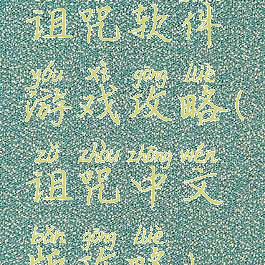 诅咒软件
yóu xì gōng lüè
游戏攻略(
zǔ zhòu zhōng wén
诅咒中文
bǎn gōng lüè
版攻略)